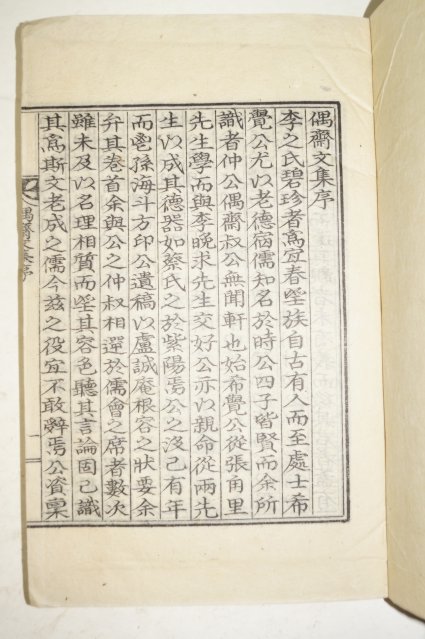 偶齋文集序
李之氏碧珍者爲宜春望族自古有人而至處士希
覺公尤以老德宿儒知名於時公四子皆賢而余所
識者仲公偶齋叔公無聞軒也始希覺公從張角里
先生學而與李晚求先生交好公亦以親命從兩先
生以成其德器如蔡氏之於紫陽焉公之沒已有年
而胤孫海斗方印公遺稿以盧誠庵根容之狀要余
弁其卷首余與公之仲叔相選於儒會之席者數次
雖未及以名理相質而望其容色聽其言論固已識
其爲斯文老成之儒今茲之役宜不敢辭焉公資稟
偶齋文集序
一